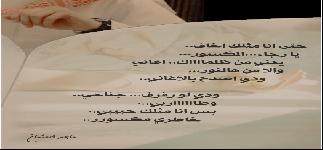 حتى انا مثلك اخاف...
يا رجاء...الكسور...
يعني من ظلماااك.. اهاتي
والا من هالنور...
ودي اصدح بالاغاني..
ودي لو رفرف... جناحي..
وطااااااربي...
بس انا مثلك حبيبي..
خاطري مكسور...